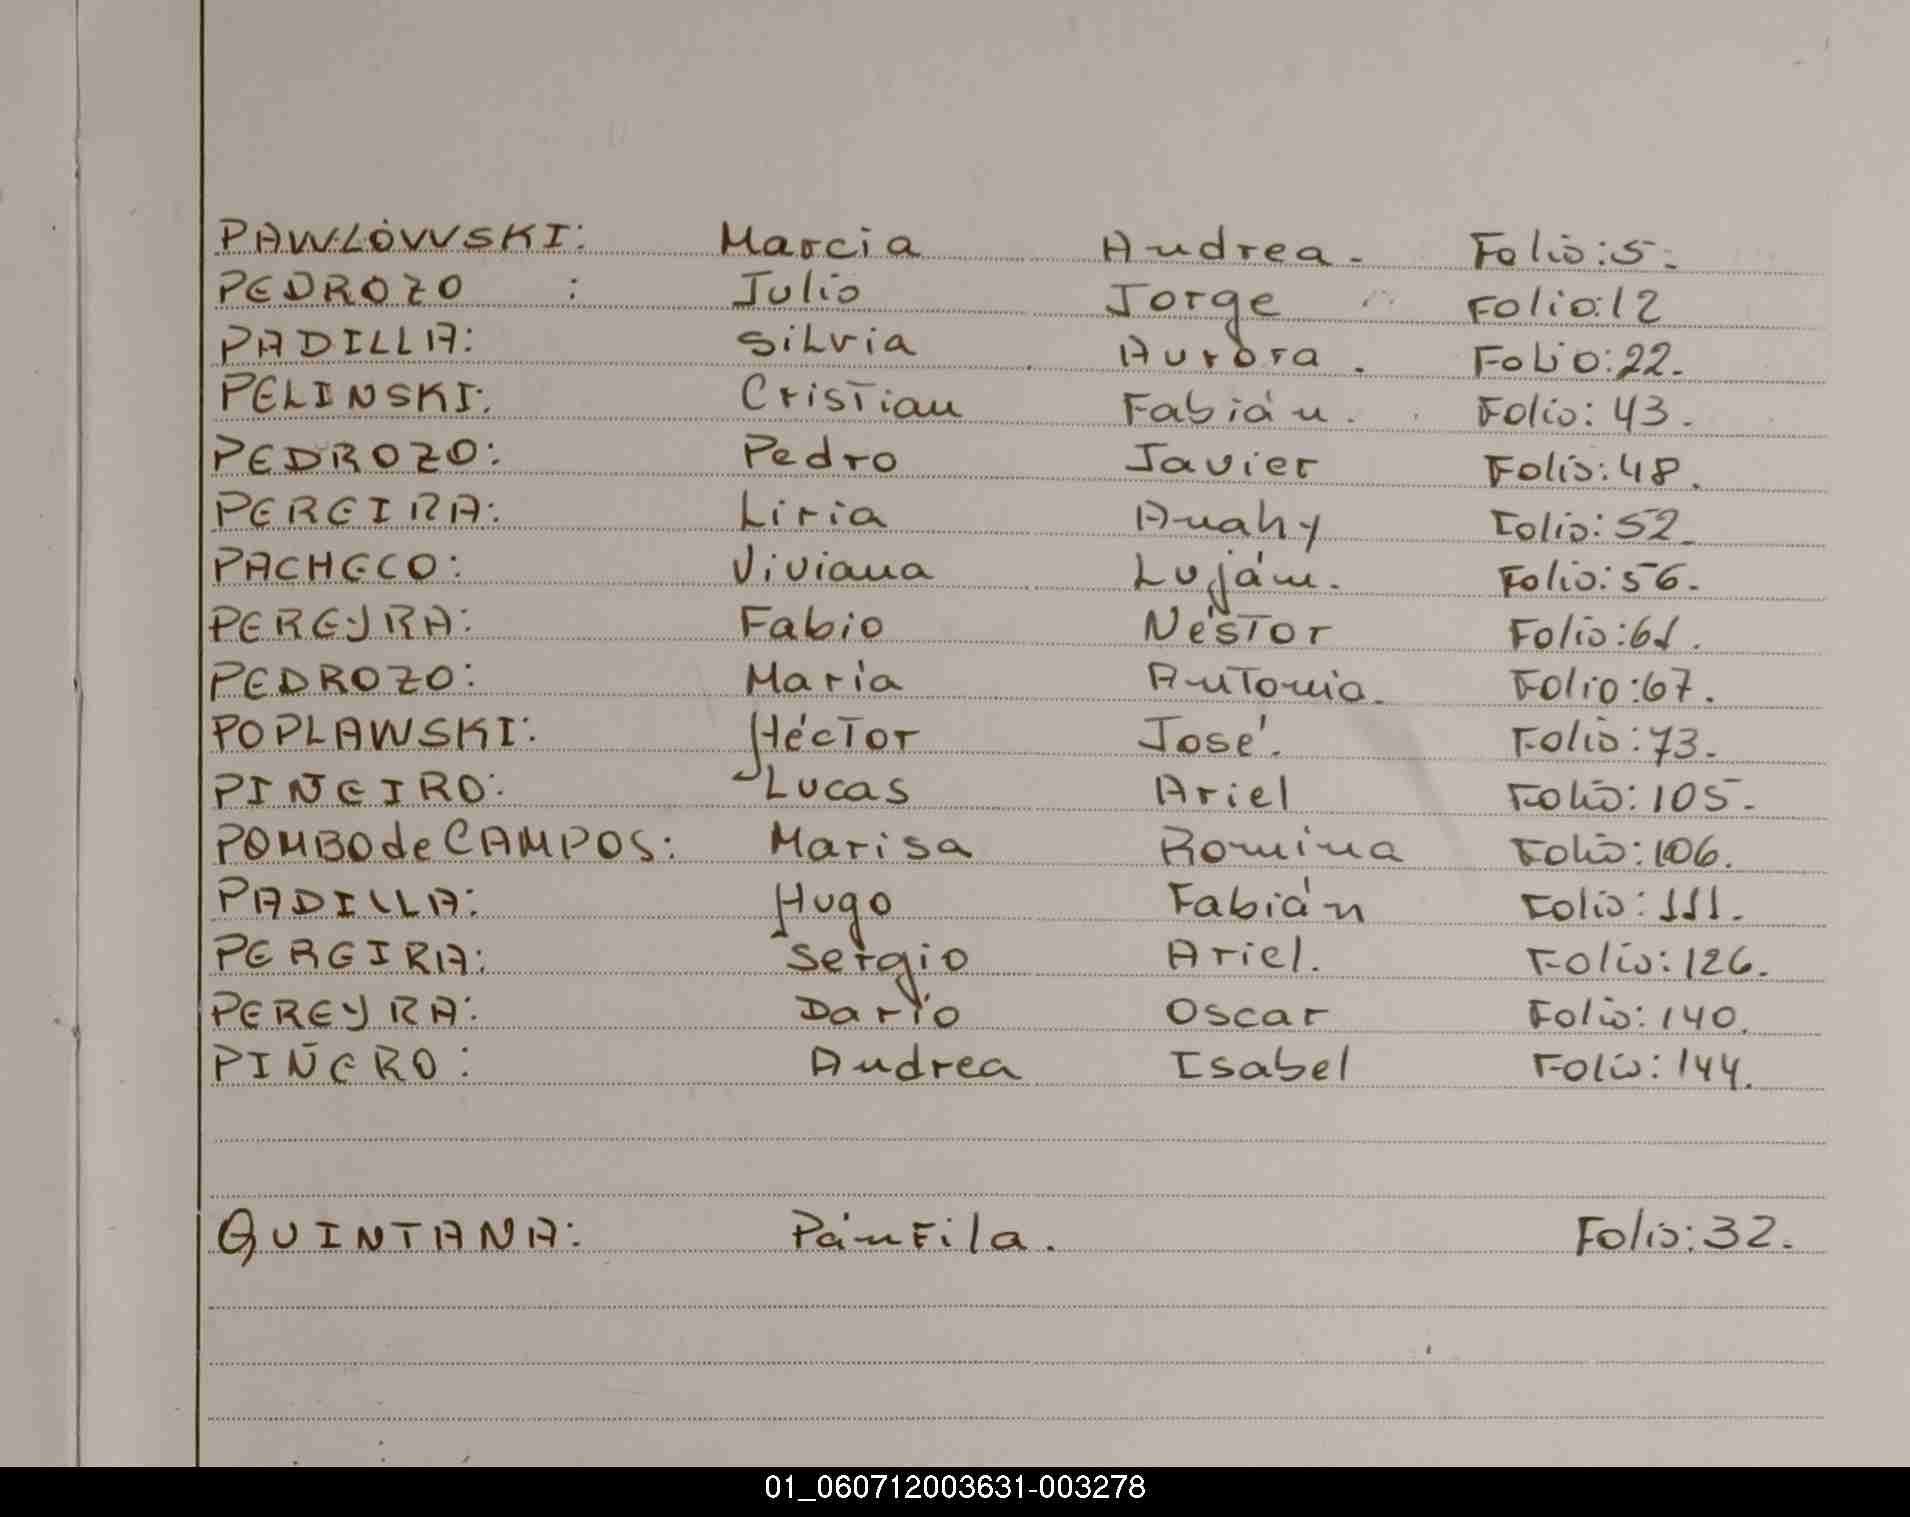 PAWLÓWSKI: Marcia Andrea. Folio: 5.
PEDROZO : Julio Jorge Folio: 12
PADILLA: Silvia Aurora. Folio: 22.
PELINSKI: Cristian Fabián. Folio: 43.
PEDROZO: Pedro Javier Folio: 48.
PEREIRA: Liria Anahy Folio: 52.
PACHECO: Viviana Luján. Folio: 56.
PEREYRA: Fabio Néstor Folio: 61.
PEDROZO: María Antonia. Folio: 67.
POPLAWSKI: Héctor José. Folio: 73.
PIÑEIRO: Lucas Ariel Folio: 105.
POMBO de CAMPOS: Marisa Romina Folio: 106.
PADILLA: Hugo Fabián Folio: 111.
PEREIRA: Sergio Ariel. Folio: 126.
PEREYRA: Darío Oscar Folio: 140.
PIÑERO: Andrea Isabel Folio: 144.
QUINTANA: Pánfila. Folio: 32.
01_060712003631-003278